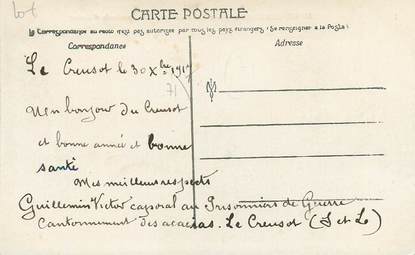 CARTE POSTALE
La Correspondance au recto n'est pas autorisée par tous les pays étrangers (Se renseigner à la Poste)
Correspondance
Adresse
Le Creusot le 30 Xbre 1917
Un bonjour du Creusot
et bonne année et bonne
santé
Mes meilleurs respects
Guillemin Victor caporal aux Prisonniers de Guerre
Cantonnement des acacias. Le Creusot (S et L)